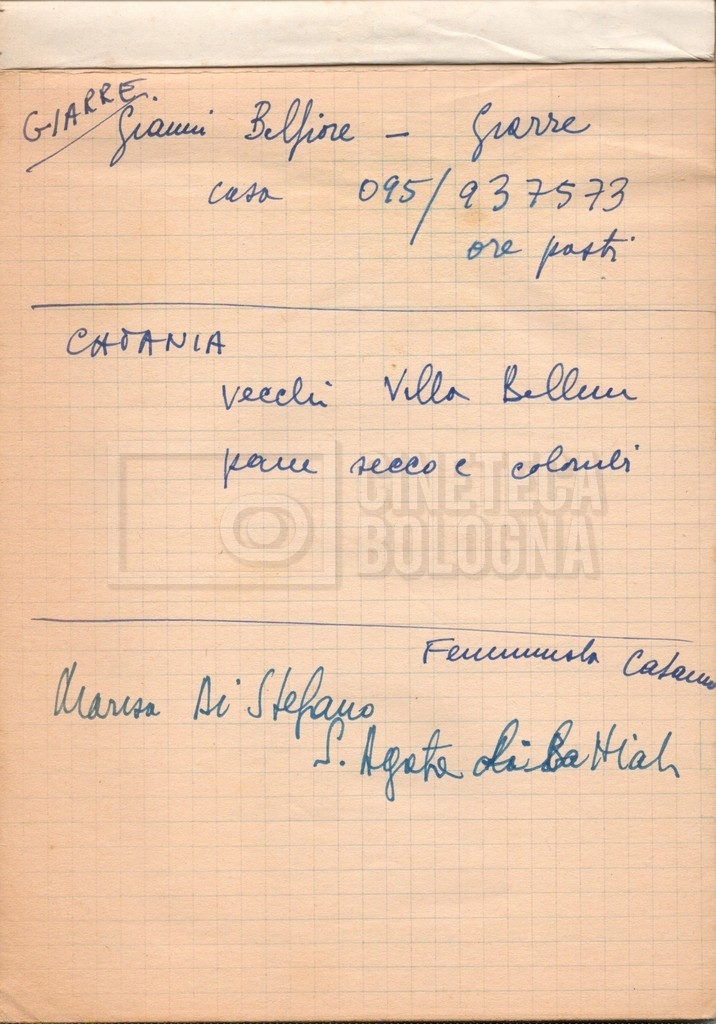 GIARRE
Gianni Belfiore - Giarre
casa 095/937573
ore pasti
CATANIA
vecchi Villa Bellini
pane secco e colombi
CINETECA
BOLOGNA
Catania
Marisa Di Stefano
S. Agata Li Battiati